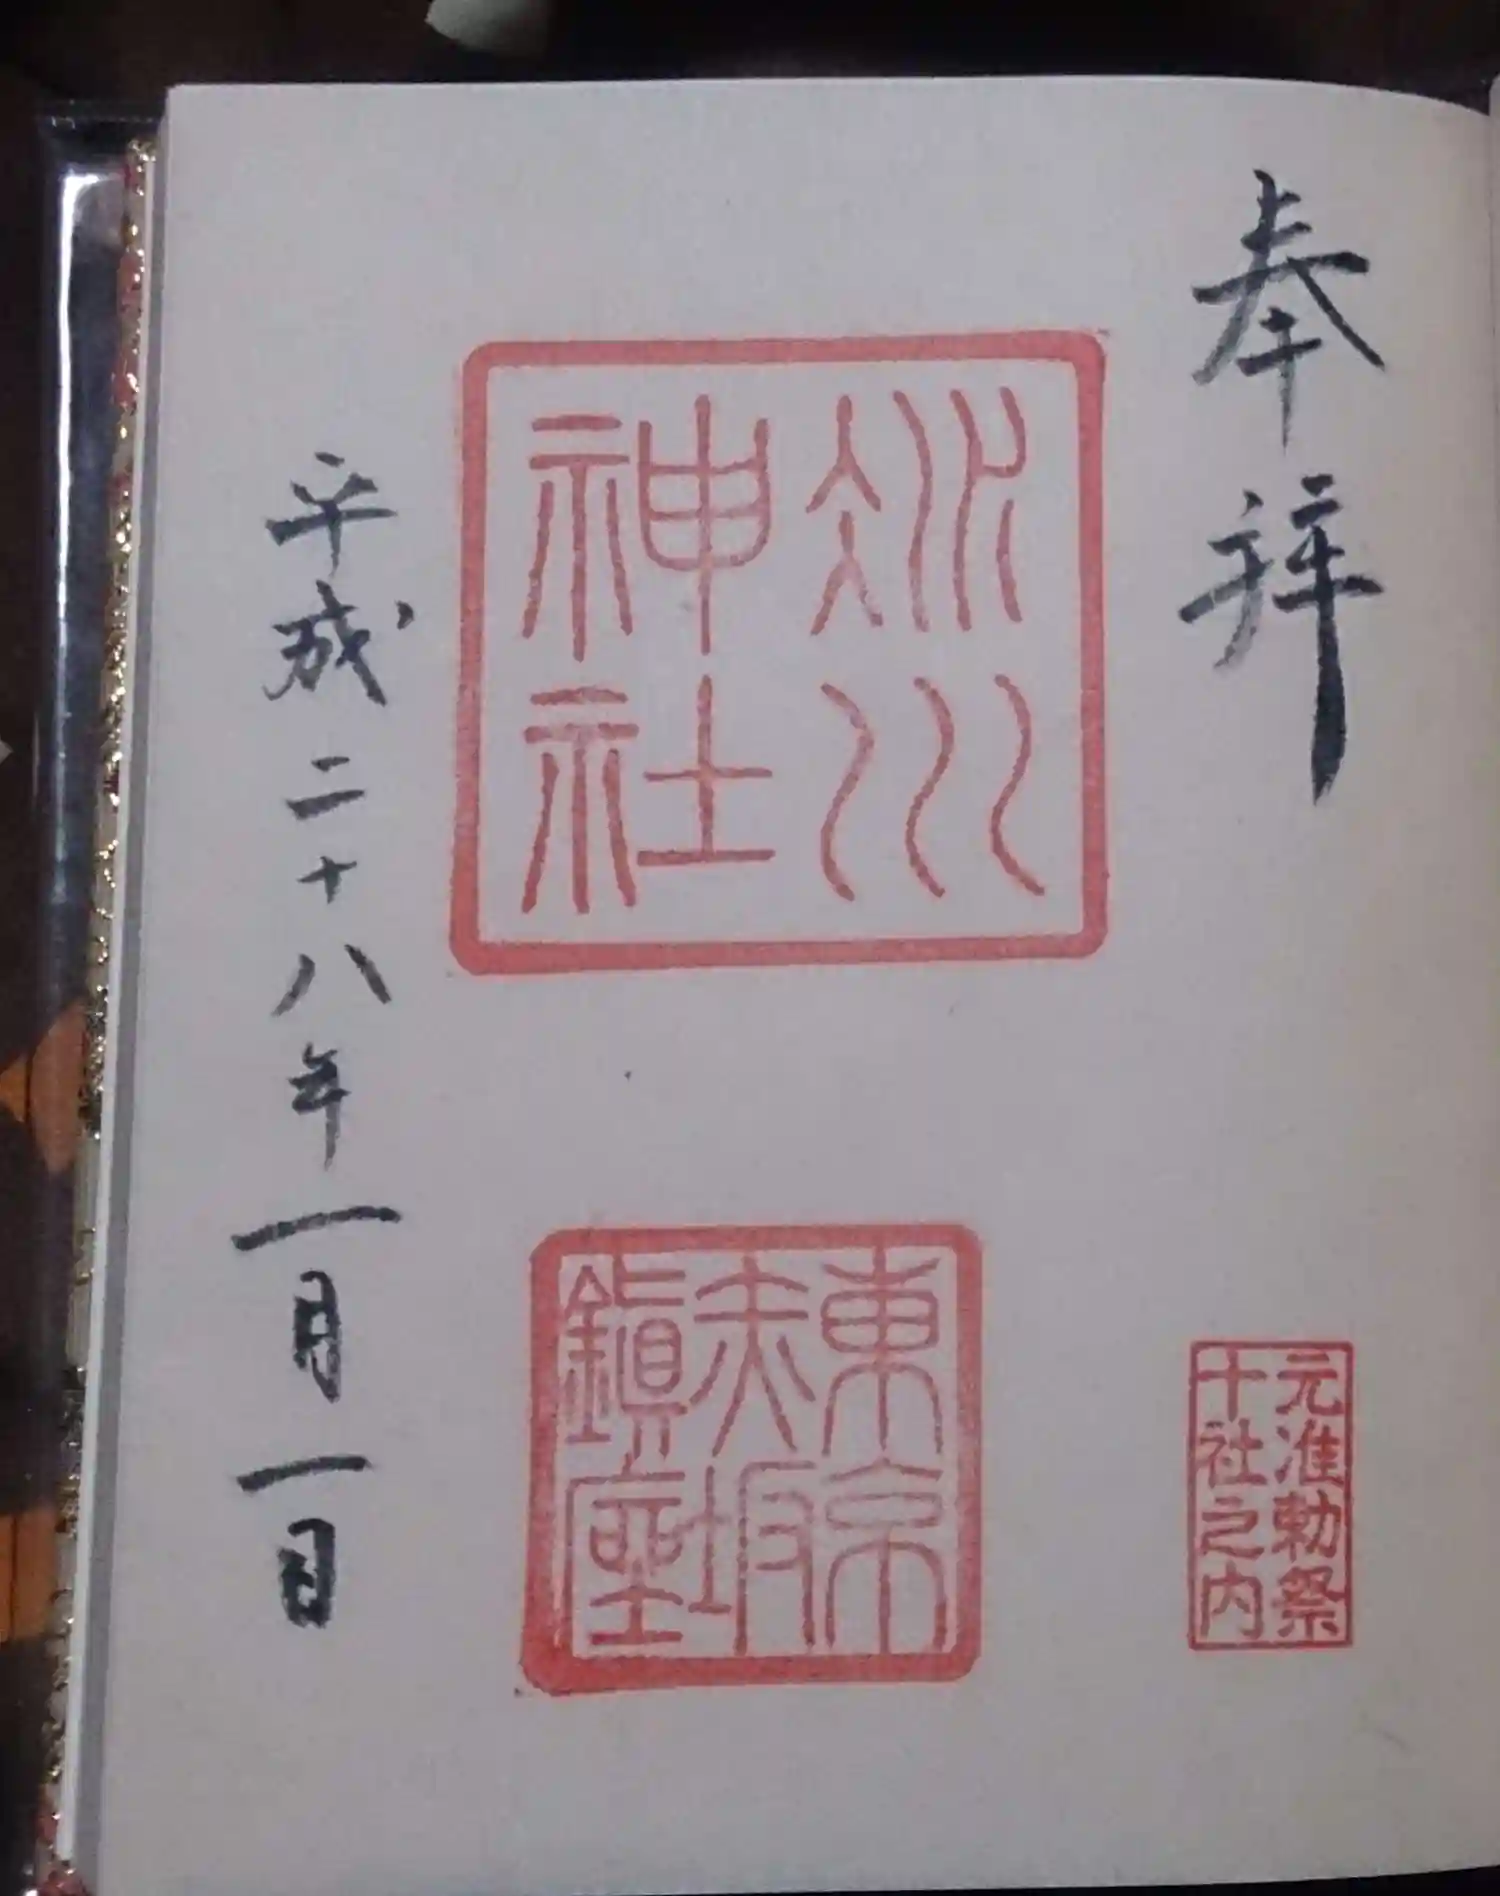 奉拝
元准勅祭
十社之内
氷川
神社
東京
赤坂
鎮座
平成二十八年一月一日